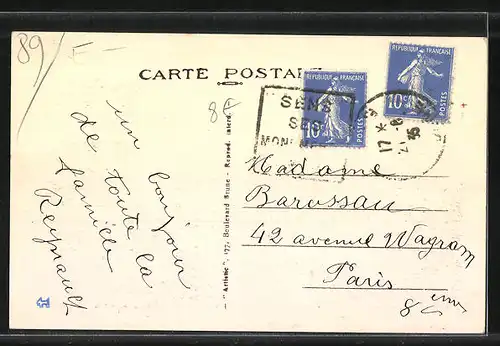 89/ E-
CARTE POSTALE
8F
RÉPUBLIQUE FRANÇAISE
10c
POSTES
RÉPUBLIQUE FRANÇAISE
10c
POSTES
SENS
SES
MON
17 *
35
un bonjour
de toute la
famille
Reynault
"Artistic", 177, Boulevard Brune - Reprod. interd.
Madame
Barussau
42 avenue Wagram
Paris
8 ème